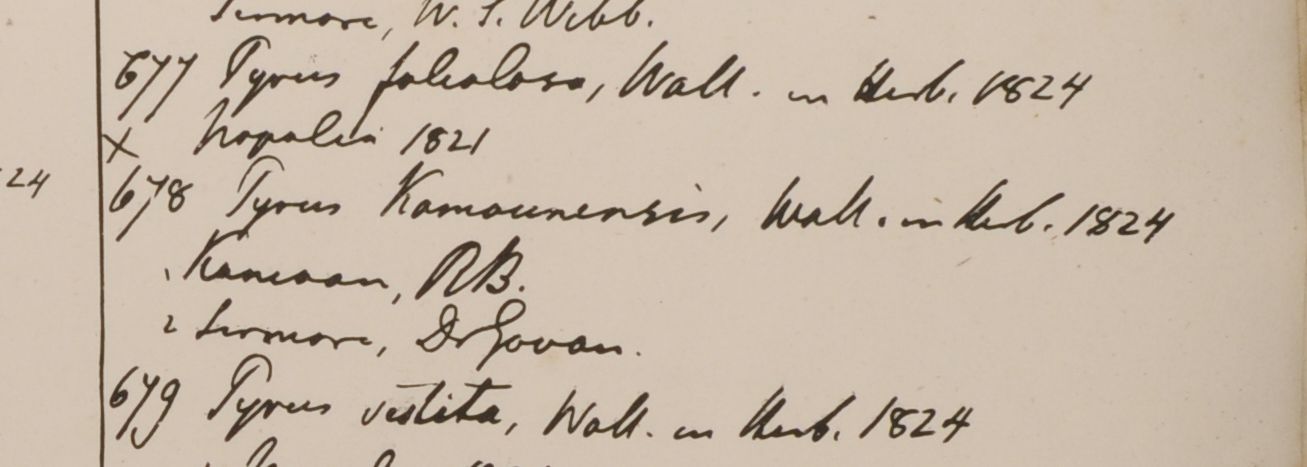 Sirmore, W. S. Webb.
677 Pyrus foliolosa, Wall. in Herb. 1824
x Napalia 1821
24
678 Pyrus Kamaunensis, Wall. in Herb. 1824
1 Kamaon, RB.
2 Sirmore, Dr Govan.
679 Pyrus vestita, Wall. in Herb. 1824